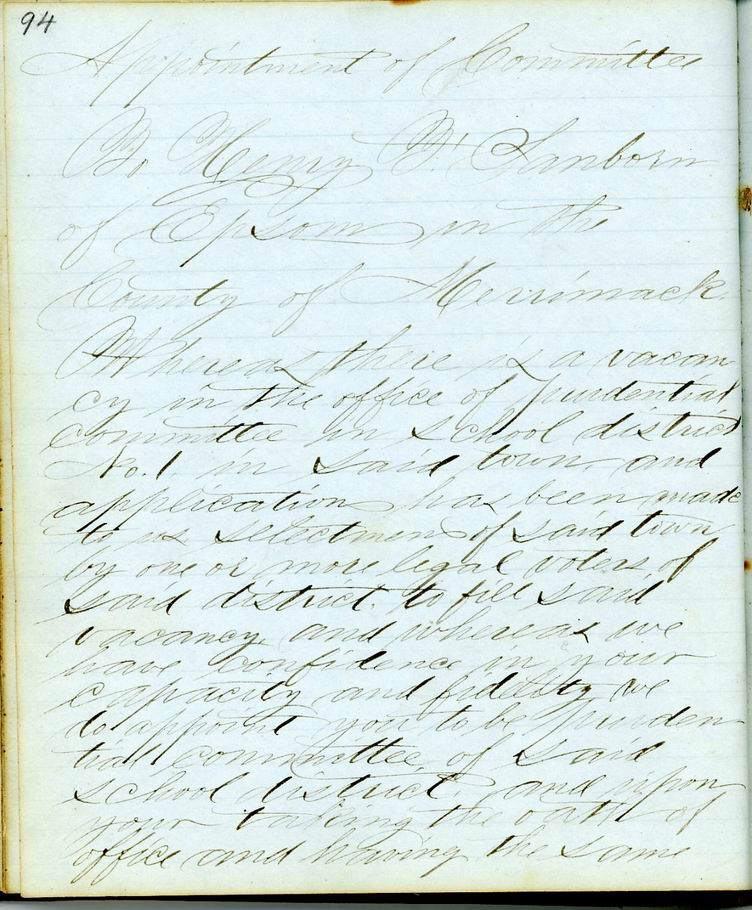 94
Appointment of Committee
To Henry F. Sanborn
of Epsom in the
County of Merrimack.
Whereas there is a vacan
cy in the office of prudential
committee in school district
No. 1 in said town and
application has been made
to us selectmen of said town
by one or more legal voters of
said district to fill said
vacancy and whereas we
have confidence in your
capacity and fidelity we
do appoint you to be pruden
tial committee of said
school district and upon
your taking the oath of
office and having the same